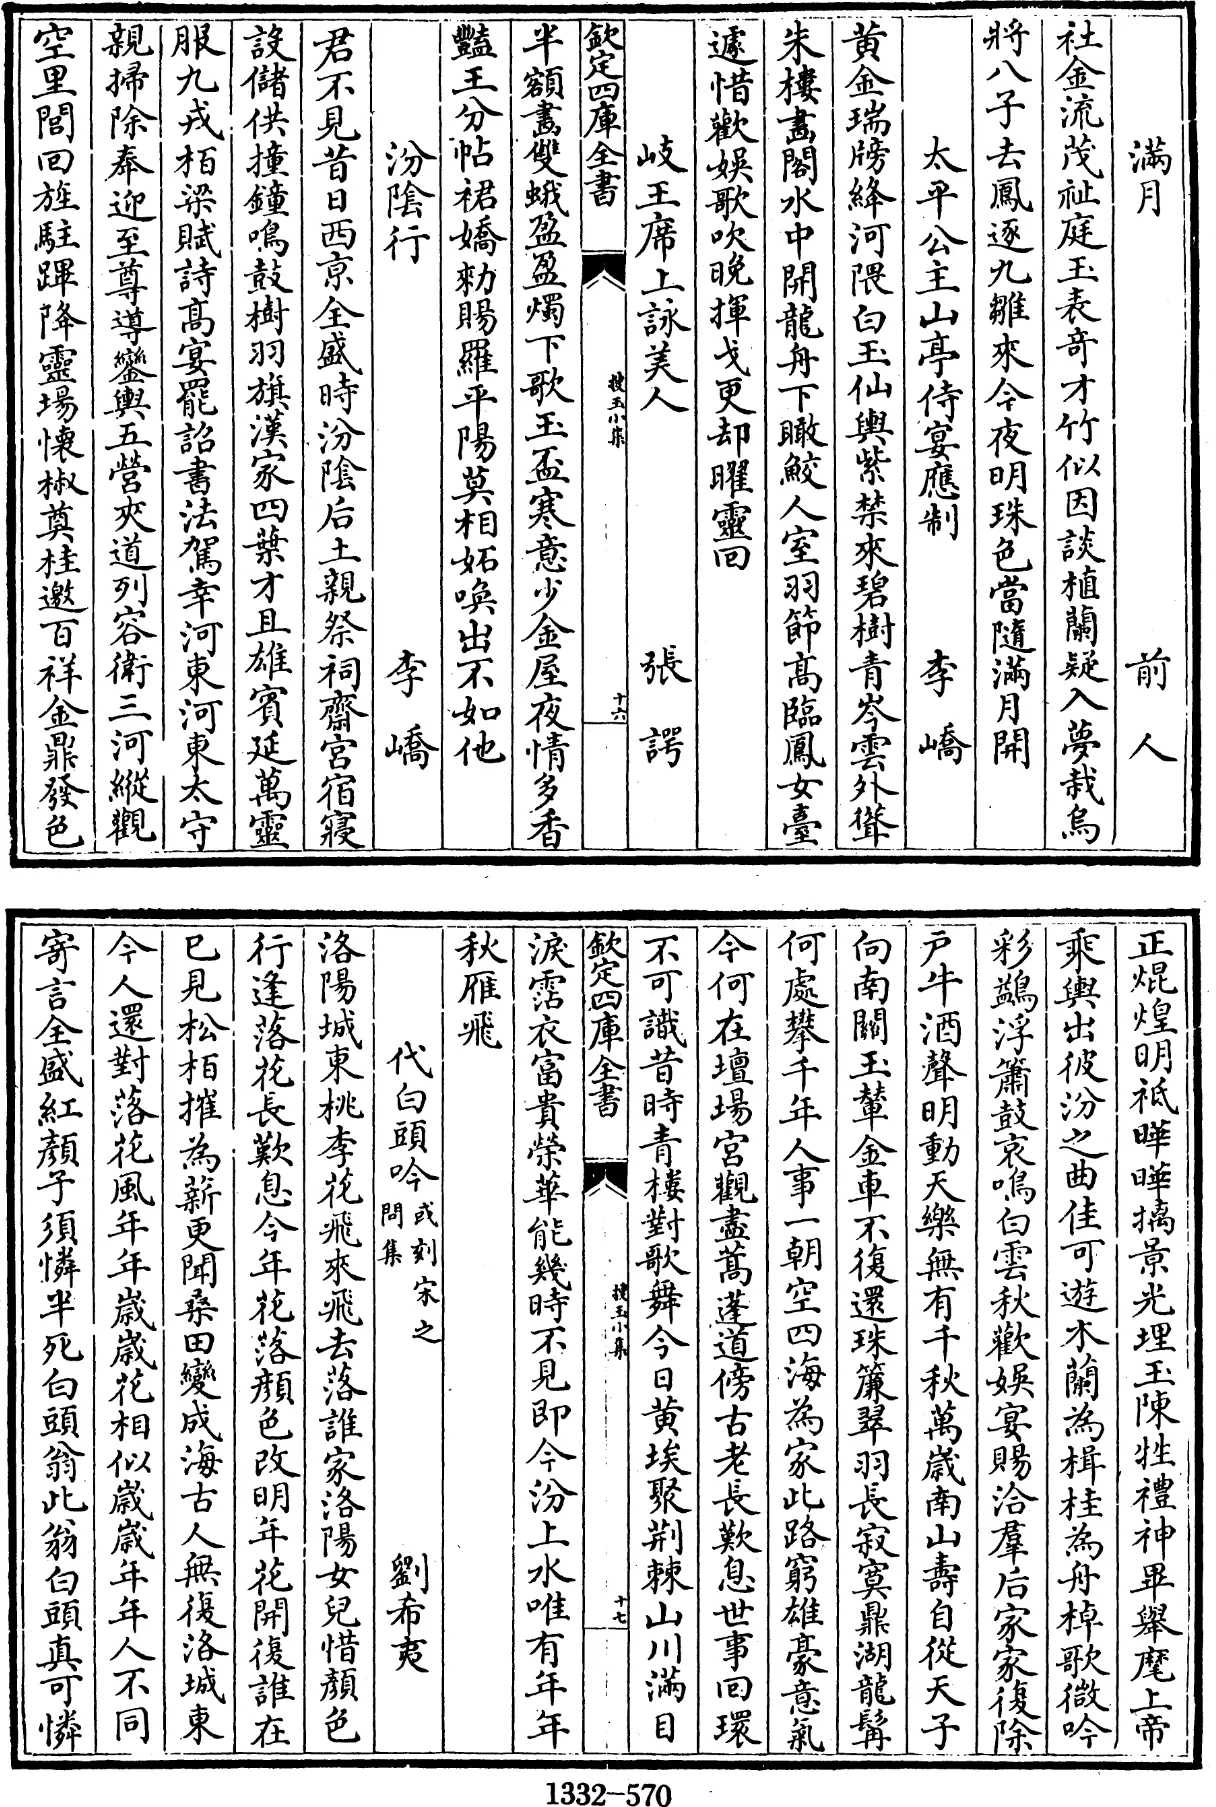 滿月　前人
社金流茂祉庭玉表奇才竹似因談植蘭疑入夢栽烏
將八子去鳳逐九雛來今夜明珠色當隨滿月開
太平公主山亭侍宴應制　李嶠
黃金瑞牓絳河隈白玉仙輿紫禁來碧樹青岑雲外聳
朱樓畫閣水中開龍舟下瞰鮫人室羽節高臨鳳女臺
遽惜歡娛歌吹晚揮戈更却曜靈回
岐王席上詠美人　張諤
欽定四庫全書　搜玉小集　十六
半額畫雙蛾盈盈燭下歌玉盃寒意少金屋夜情多香
豔王分帖裙嬌勑賜羅平陽莫相妬喚出不如他
汾陰行　李嶠
君不見昔日西京全盛時汾陰后土親祭祠齋宮宿寢
設儲供撞鐘鳴鼓樹羽旗漢家四葉才且雄賓延萬靈
服九戎栢梁賦詩高宴罷詔書法駕幸河東河東太守
親掃除奉迎至尊導鑾輿五營夾道列容衛三河縱觀
空里閭回旌駐蹕降靈場懷椒奠桂邀百祥金鼎發色
正焜煌明祗曄曄摛景光埋玉陳牲禮神畢舉麾上帝
乘輿出彼汾之曲佳可遊木蘭為楫桂為舟棹歌微吟
彩鷁浮簫鼓哀鳴白雲秋歡娛宴賜洽羣后家家復除
戶牛酒聲明動天樂無有千秋萬歲南山壽自從天子
向南關玉輦金車不復還珠簾翠羽長寂寞鼎湖龍髯
何處攀千年人事一朝空四海為家此路窮雄豪意氣
今何在壇場宮觀盡蒿蓬道傍古老長歎息世事回環
不可識昔時青樓對歌舞今日黃埃聚荆棘山川滿目
欽定四庫全書　搜玉小集　十七
淚霑衣富貴榮華能幾時不見即今汾上水唯有年年
秋雁飛
代白頭吟或刻宋之問集　劉希夷
洛陽城東桃李花飛來飛去落誰家洛陽女兒惜顏色
行逢落花長歎息今年花落顏色改明年花開復誰在
已見松栢摧為薪更聞桑田變成海古人無復洛城東
今人還對落花風年年歲歲花相似歲歲年年人不同
寄言全盛紅顏子須憐半死白頭翁此翁白頭真可憐
1332-570